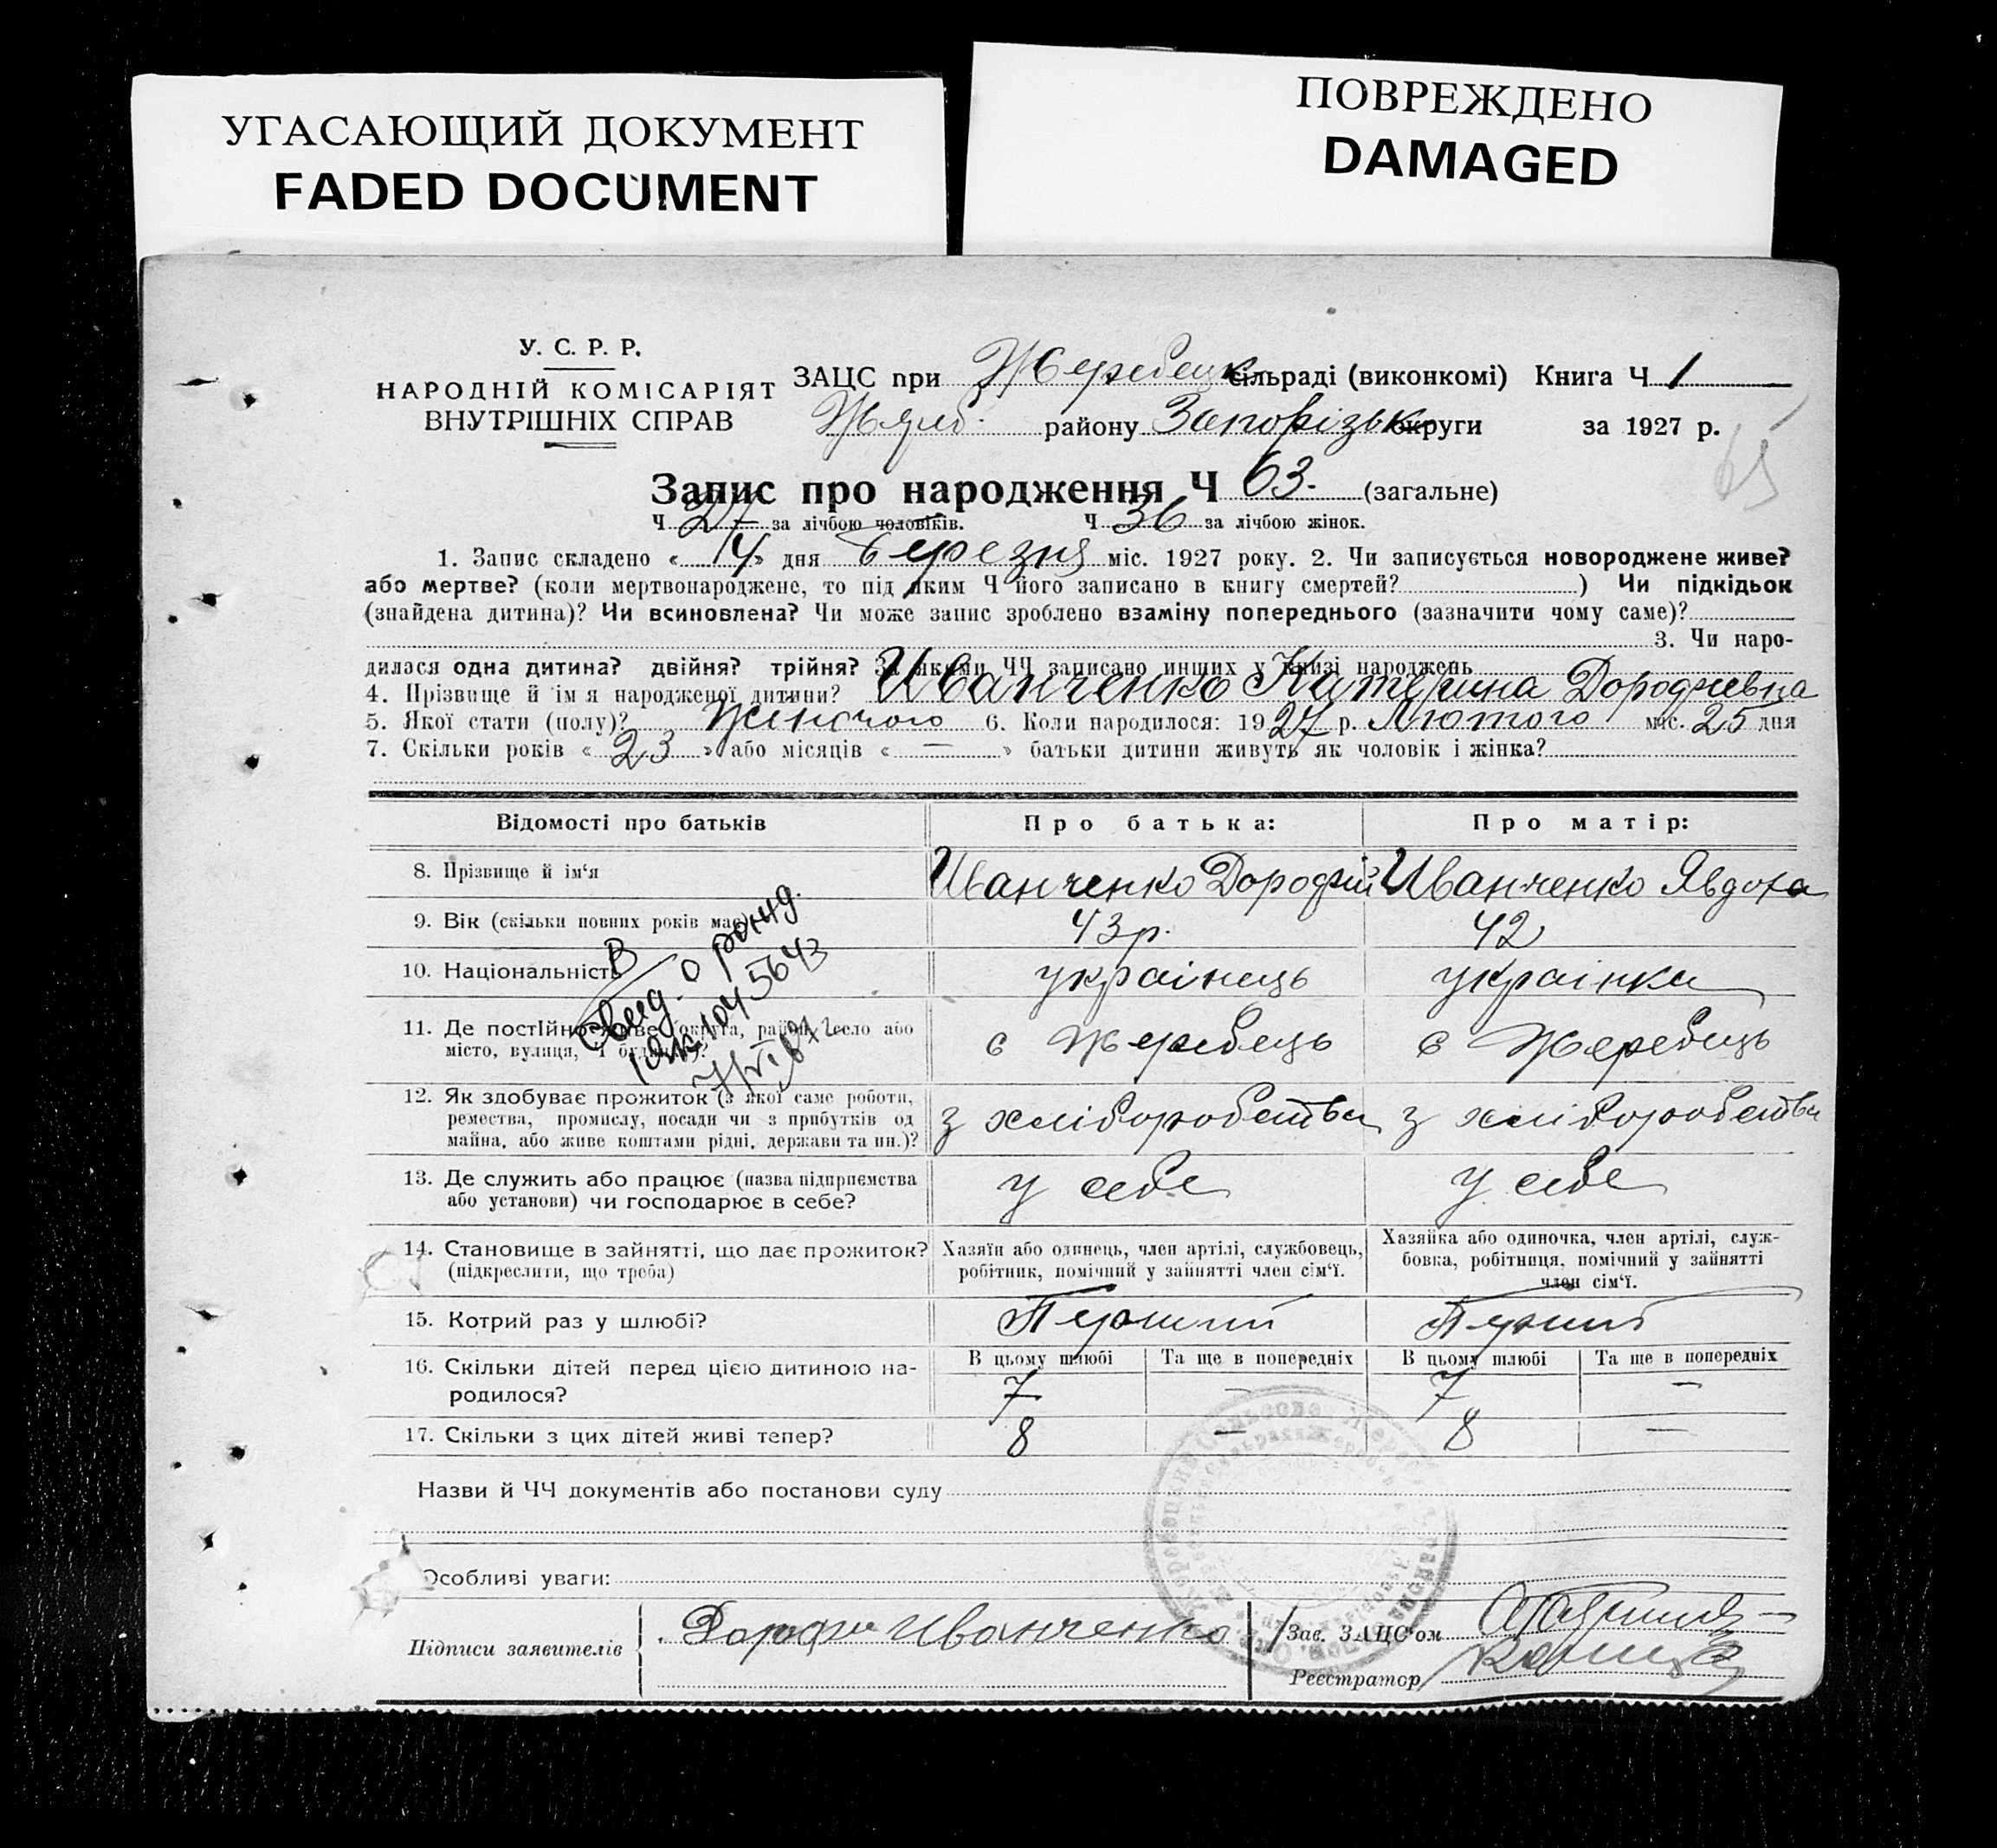 УГАСАЮЩИЙ ДОКУМЕНТ
FADED DOCUMENT
ПОВРЕЖДЕНО
DAMAGED
У. С. Р. Р.
НАРОДНІЙ КОМІСАРІЯТ
ВНУТРІШНІХ СПРАВ
ЗАЦС при Жеребецк сільраді (виконкомі) Книга Ч 1
району Запорізьк округи за 1927 р.
65
Запис про народження Ч 63. (загальне)
Ч 27 за лічбою чоловіків. Ч 36 за лічбою жінок.
1. Запис складено « 14 » дня березня міс. 1927 року. 2. Чи записується новороджене живе?
або мертве? (коли мертвонароджене, то під яким Ч його записано в книгу смертей? ) Чи підкідьок
(знайдена дитина)? Чи всиновлена? Чи може запис зроблено взаміну попереднього (зазначити чому саме)?
3. Чи наро-
дилася одна дитина? двійня? трійня? За якими ЧЧ записано инших у книзі народжень
4. Прізвище й ім я народженої дитини? Иванченко Катерина Дорофиевна
5. Якої стати (полу)? Женского 6. Коли народилося: 1927 р. Лютого міс. 25 дня
7. Скільки років « 23 » або місяців « — » батьки дитини живуть як чоловік і жінка?
Відомості про батьків Про батька: Про матір:
8. Прізвище й ім'я Иванченко Дорофій Иванченко Явдоха
9. Вік (скільки повних років має) 43 р. 42
10. Національність українець українка
11. Де постійно живе (округа, район, село або
місто, вулиця, Ч будинку)? с Жеребець с Жеребець
В
свид. о рожд.
12. Як здобуває прожиток (з якої саме роботи,
ремества, промислу, посади чи з прибутків од
майна, або живе коштами рідні, держави та ин.)? з хліборобства з хліборобства
13. Де служить або працює (назва підприємства
або установи) чи господарює в себе? у себе у себе
14. Становище в зайнятті, що дає прожиток?
(підкреслити, що треба)
Хазяїн або одинець, член артілі, службовець,
робітник, помічний у зайнятті член сім'ї.
Хазяйка або одиночка, член артілі, служ-
бовка, робітниця, помічний у зайнятті
член сім'ї.
15. Котрий раз у шлюбі? Перший Перший
16. Скільки дітей перед цією дитиною на-
родилося?
В цьому шлюбі Та ще в попередніх В цьому шлюбі Та ще в попередніх
7 — 7 —
17. Скільки з цих дітей живі тепер? 8 — 8 —
Назви й ЧЧ документів або постанови суду
Особливі уваги:
Підписи заявителів Дорофи Иванченко
Зав. ЗАЦС'ом
Реєстратор